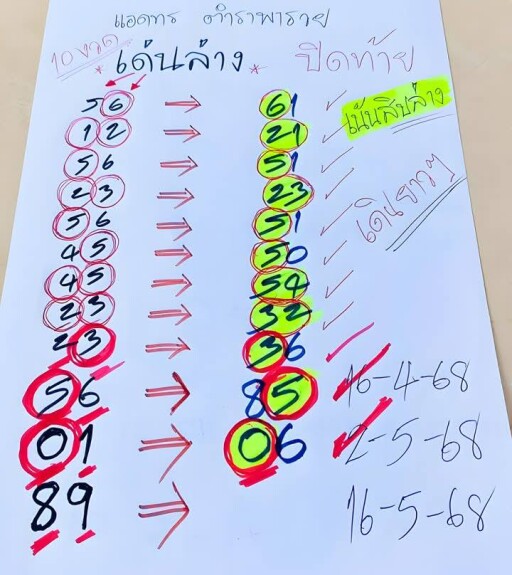 แอดทร ตำราพารวย
10 งวด
* เด่นล่าง * ปิดท้าย
56 → 61 ✓ เน้นสิบล่าง
12 → 21 ✓
56 → 51 ✓
23 → 23 ✓ เดินยาวๆ
56 → 51 ✓
45 → 50 ✓
45 → 54 ✓
23 → 32 ✓
23 → 36 ✓
56 → 85 ✓ 16-4-68
01 → 06 ✓ 2-5-68
89 → 16-5-68